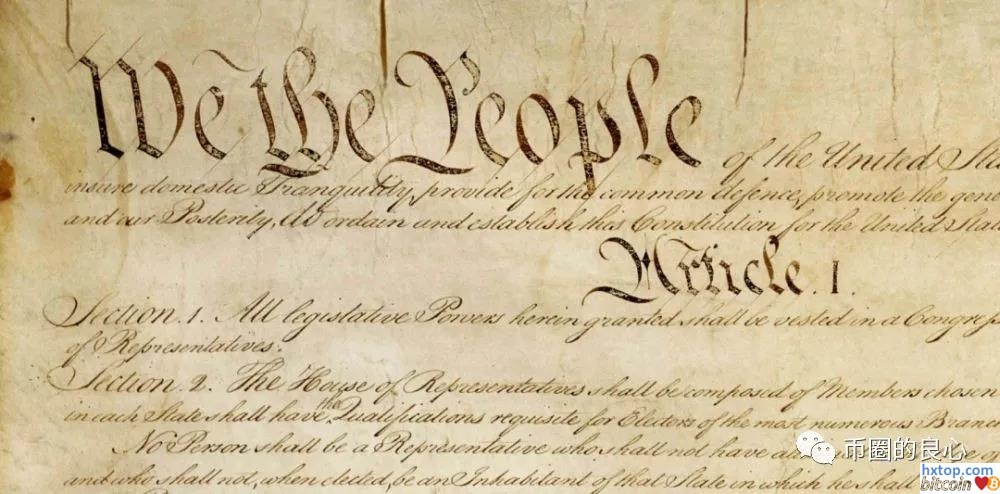 We the People of the United Sta
insure domestic Tranquility, provide for the common defence, promote the gene
and our Posterity, do ordain and establish this Constitution for the United Stat
Article. I.
Section. 1. All legislative Powers herein granted shall be vested in a Congres
of Representatives.
Section. 2. The House of Representatives shall be composed of Members chosen
in each State shall have the Qualifications requisite for Electors of the most numerous Branc
No Person shall be a Representative who shall not have
and who shall not, when elected, be an Inhabitant of that State in which he shall
币圈的良心
hxtop.com
bitcoin